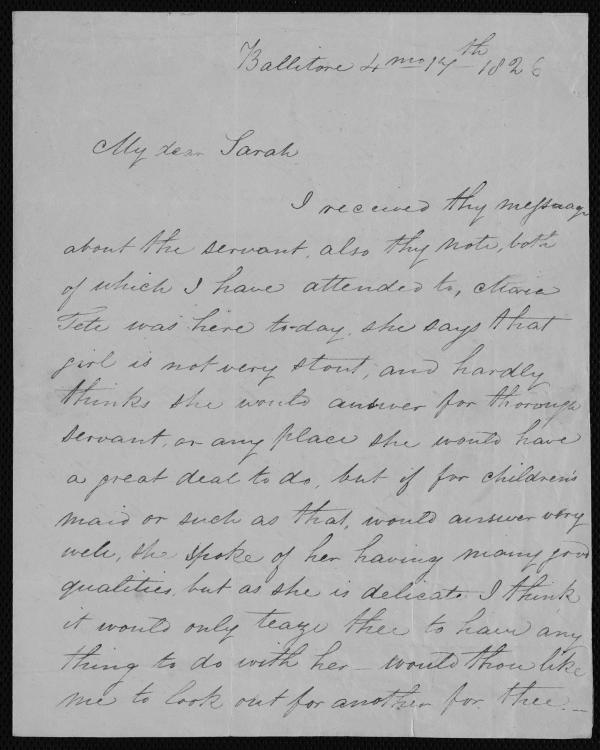 Ballitore 4 mo 17th 1826
My dear Sarah
I received thy message
about the servant, also thy note, both
of which I have attended to, Maria
was here to-day, she says that
girl is not very stout, and hardly
thinks she would answer for thorough
servant, or any place she would have
a great deal to do, but if for children's
maid or such as that, would answer very
well, she spoke of her having many good
qualities, but as she is delicate I think
it would only teaze thee to have any
thing to do with her – would thou like
me to look out for another for thee –